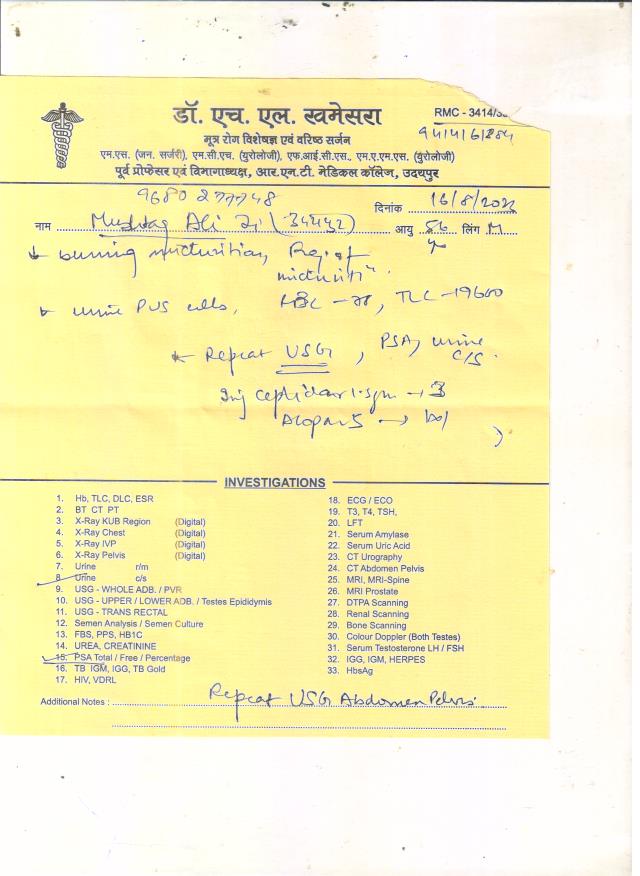 डॉ. एच. एल. खमेसरा
RMC - 3414/
मूत्र रोग विशेषज्ञ एवं वरिष्ठ सर्जन
एम.एस. (जन. सर्जरी), एम.सी.एच. (युरोलोजी), एफ.आई.सी.एस., एम.ए.एम.एस. (युरोलोजी)
पूर्व प्रोफेसर एवं विभागाध्यक्ष, आर.एन.टी. मेडिकल कॉलेज, उदयपुर
9680 277748
दिनांक 16/8/2022
नाम Mushtaq Ali आयु 56 लिंग M
burning micturition,
micturition
urine pus cells, TLC - 19600
Repeat USG, PSA, urine
c/s.
Inj
INVESTIGATIONS
1. Hb, TLC, DLC, ESR
2. BT CT PT
3. X-Ray KUB Region (Digital)
4. X-Ray Chest (Digital)
5. X-Ray IVP (Digital)
6. X-Ray Pelvis (Digital)
7. Urine r/m
8. Urine c/s
9. USG - WHOLE ADB. / PVR
10. USG - UPPER / LOWER ADB. / Testes Epididymis
11. USG - TRANS RECTAL
12. Semen Analysis / Semen Culture
13. FBS, PPS, HB1C
14. UREA, CREATININE
15. PSA Total / Free / Percentage
16. TB IGM, IGG, TB Gold
17. HIV, VDRL
18. ECG / ECO
19. T3, T4, TSH,
20. LFT
21. Serum Amylase
22. Serum Uric Acid
23. CT Urography
24. CT Abdomen Pelvis
25. MRI, MRI-Spine
26. MRI Prostate
27. DTPA Scanning
28. Renal Scanning
29. Bone Scanning
30. Colour Doppler (Both Testes)
31. Serum Testosterone LH / FSH
32. IGG, IGM, HERPES
33. HbsAg
Additional Notes : Repeat USG Abdomen Pelvis